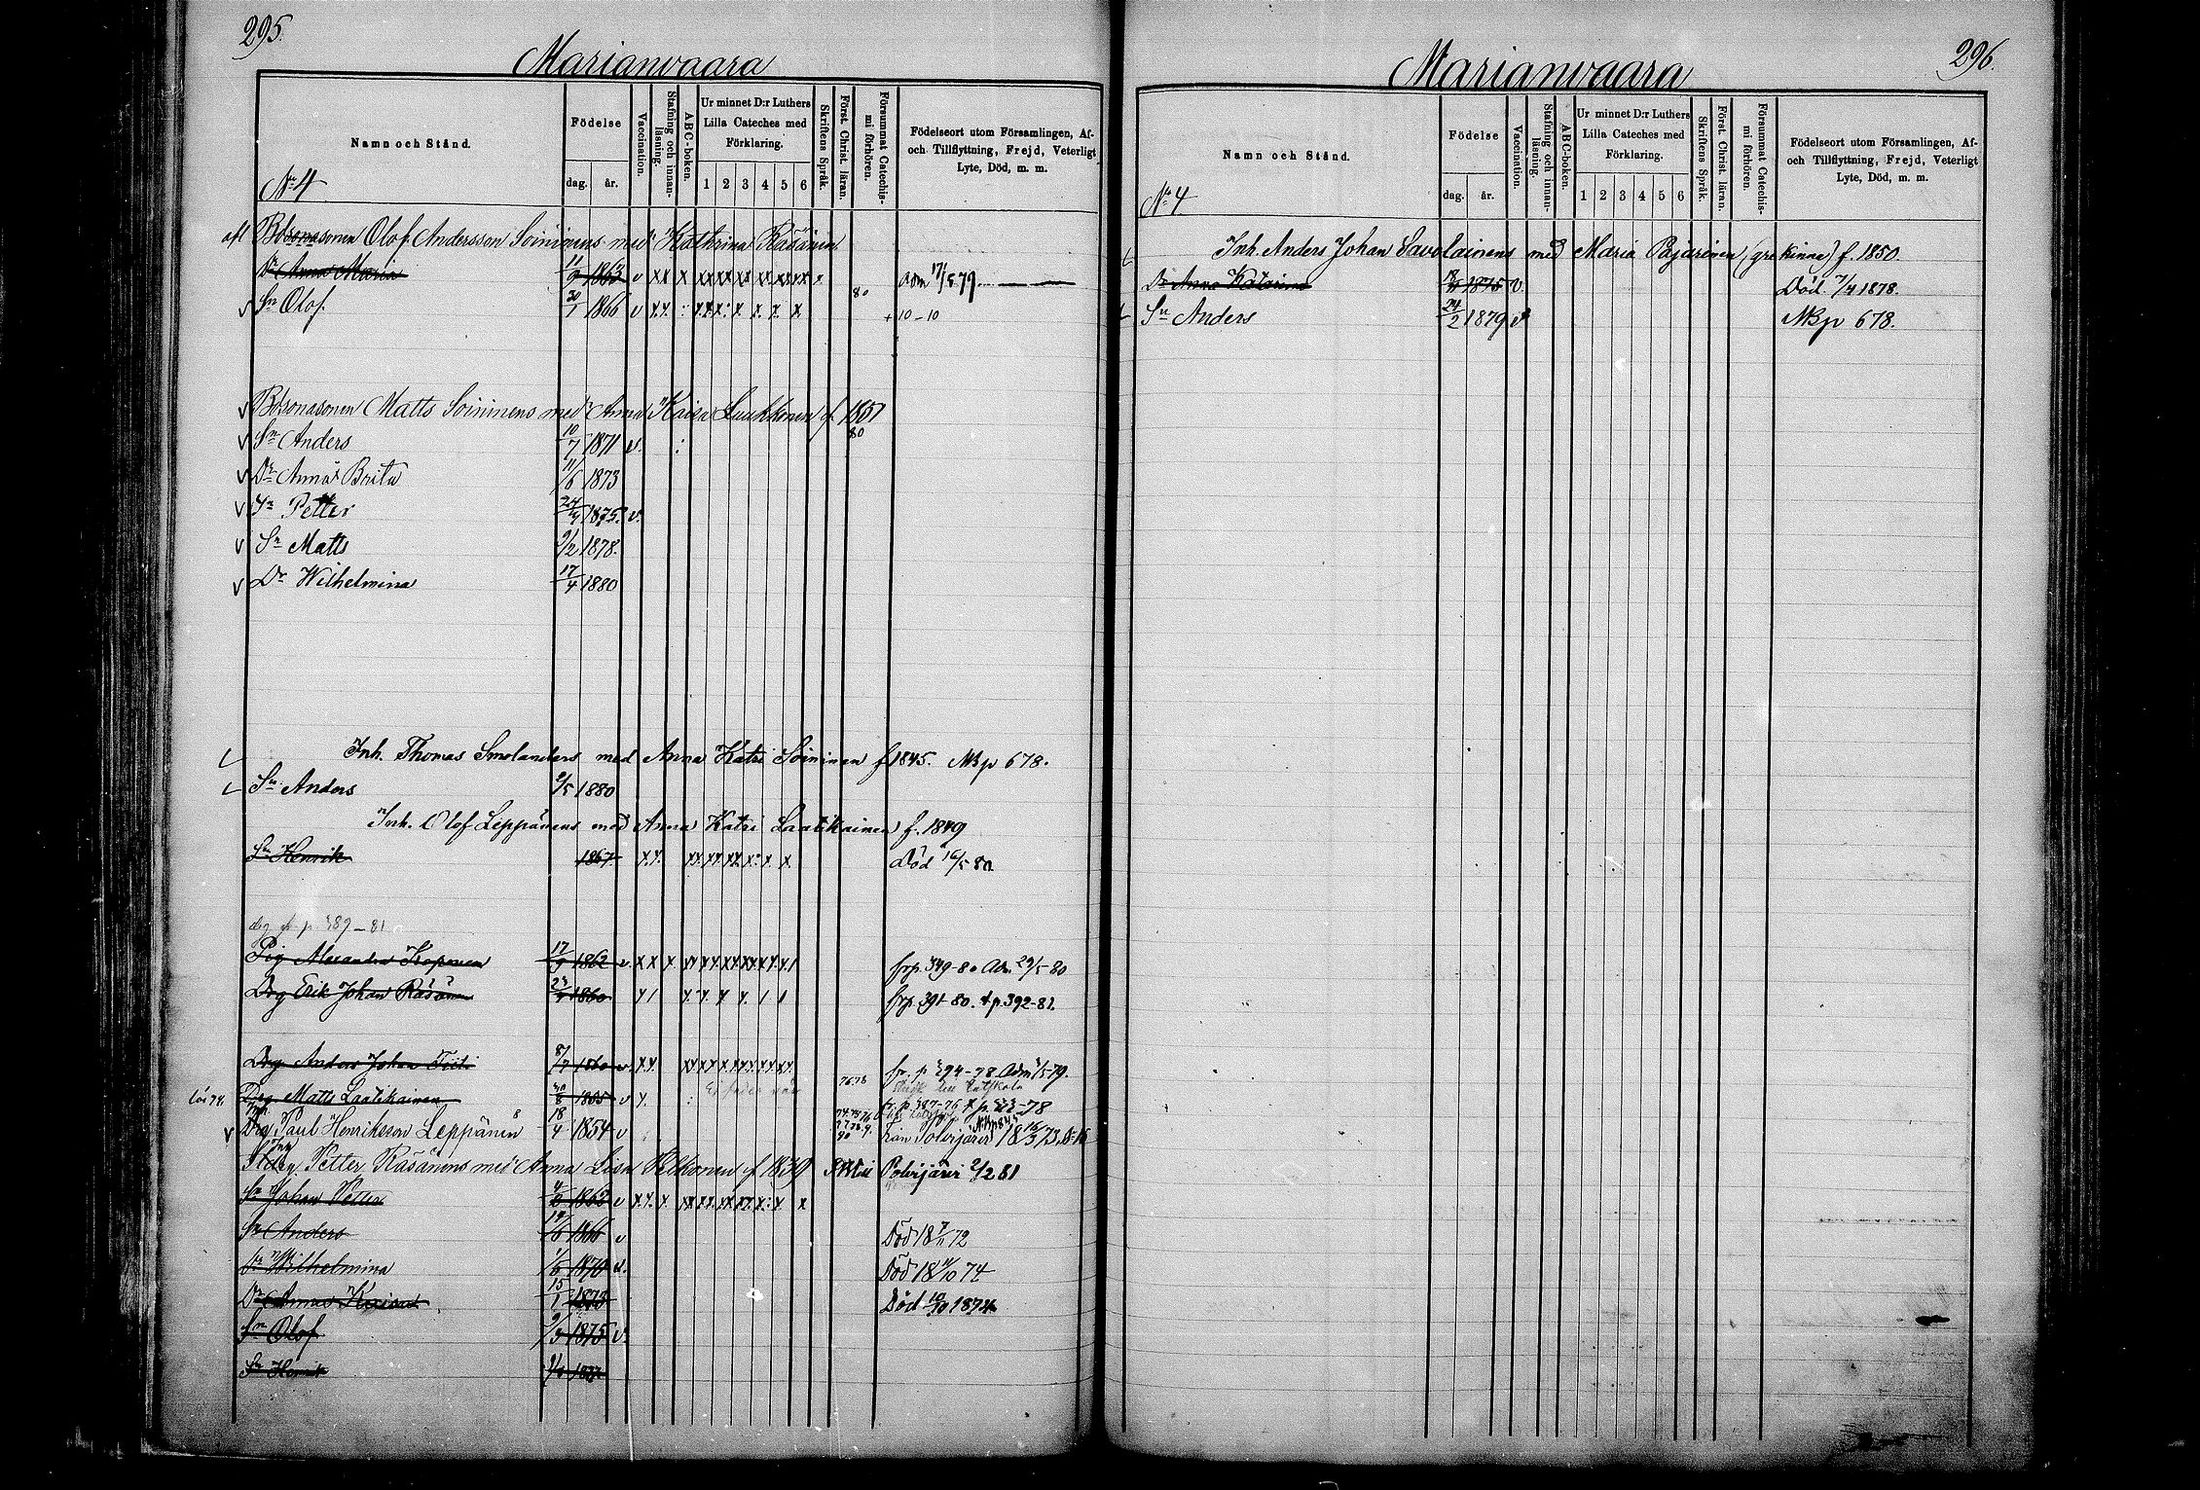 295.
Marianvaara
Namn och Stånd.
Födelse
dag. år.
Vaccination.
Stafning och innan-läsning.
ABC-boken.
Ur minnet D:r Luthers Lilla Cateches med Förklaring.
1 2 3 4 5 6
Skriftens Språk.
Först. Christ. läran.
Försummat Catechis-mi förhören.
Födelseort utom Församlingen, Af- och Tillflyttning, Frejd, Veterligt Lyte, Död, m. m.
No 4
Bdesonasonen Olof Andersson Soininens med Kathrina Räsänen
Dr Anna Maria 11/9 1863 v adm 17/5 79.
Sn Olof. 20/7 1866 v 80 + 10-10
Bdesonasonen Matts Soininens med Anna Kaisa Luukkonen f. 1851
Sn Anders 10/7 1871 v. 80
Dr Anna Brita 11/6 1873
Sn Petter 1875. v.
Sn Matts 9/2 1878.
Dr Wilhelmina 17/4 1880
Inh. Thomas Smolanders med Anna Katri Soininen f 1845. MBp 678.
Sn Anders 2/5 1880
Inh. Olof Leppänens med Anna Katri Laatikainen f. 1849
Sn Henrik 1867 Död 16/5 80.
p 389-81
Pig Alexandra Koponen 17/9 1862 v. frp. 349-80 Adm 29/5-80
Drg Erik Johan Räsänen 1860 frp. 391-80. t p. 392-81.
Drg Anders Johan Tiiti 8/7 1860 v. fr. p 294-78. Adm 1/5-79.
Drg Matts Laatikainen 1855 v 76.78 fr. p 387-76
Drg Paul Henriksson Leppänen 18/4 1854 v från Polvijärvi
Petter Räsänens med Anna Lisa f 1839 Polvijärvi 2/2 81
Sn Johan Petter 1862 v
Sn Anders 1866 v Död 18 7/11 72
Dr Wilhelmina 1/5 1870 v. Död 18 4/10 74
Dr Anna Kaisa 15/1 1873 Död 10/10 1874
Sn Olof 9/3 1875 v.
Sn Henrik
296.
Marianvaara
Namn och Stånd.
Födelse
dag. år.
Vaccination.
Stafning och innan-läsning.
ABC-boken.
Ur minnet D:r Luthers Lilla Cateches med Förklaring.
1 2 3 4 5 6
Skriftens Språk.
Först. Christ. läran.
Försummat Catechis-mi förhören.
Födelseort utom Församlingen, Af- och Tillflyttning, Frejd, Veterligt Lyte, Död, m. m.
No 4
Inh. Anders Johan Savolainens med Maria Pajarinen (gre kinna) f. 1850
Dr Anna Katarina 1875 v. Död. 7/4 1878.
Sn Anders 24/2 1879 v MBp 678.